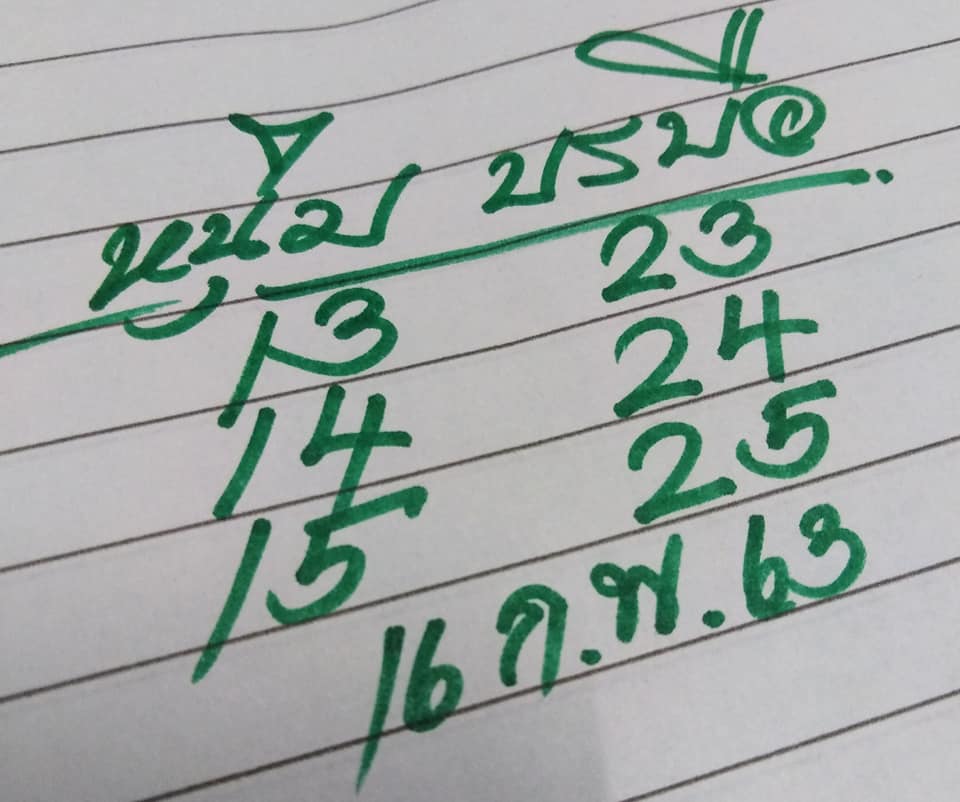 หนุ่ม บรบือ
13 23
14 24
15 25
16 ก.พ.63